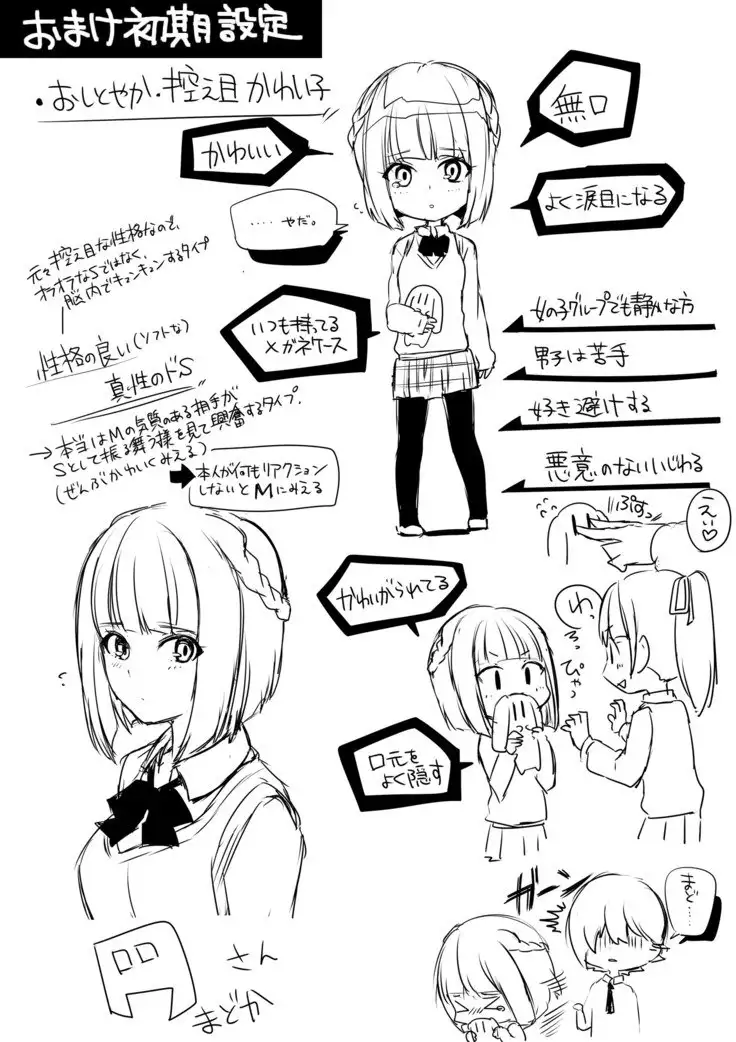 おまけ初期設定
・おしとやか・控え目かわい子
かわいい
無口
よく涙目になる
‥‥やだ。
元々控え目な性格なので、
オラオラなSではなく、
脳内でキュンキュンするタイプ
いつも持ってる
メガネケース
女の子グループでも静かな方
男子は苦手
好き避けする
悪意のないいじわる
性格の良い(ソフトな)
真性のドS
→本当はMの気質のある相手が
Sとして振る舞う様を見て興奮するタイプ.
(ぜんぶかわいくみえる)
本人が何もリアクション
しないとMにみえる
ぷすっ
えい♡
かわいがられてる
わ、
ろっぴゃっ
口元を
よく隠す
ガーン
まど‥‥
さん
まどか